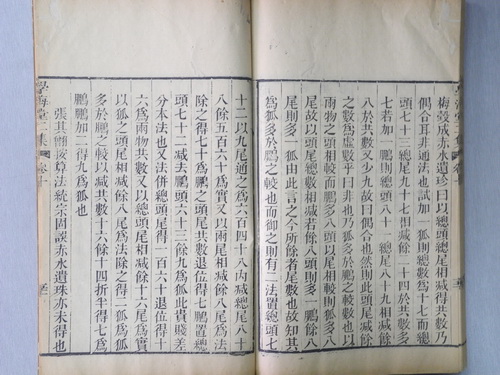 梅瑴成赤水遺珍曰以總頭總尾相減得共數乃
偶合耳非通法也試加一狐則總數爲十七而總
頭七十三總尾九十七相減餘二十四於共數多
七若加一鵬則總頭八十一總尾八十九相減餘
八於共數又少九故曰偶合也然則此總頭總尾
之數爲虛數乎曰非也乃狐多於鵬之較數也以
兩物之頭相較而鵬多八頭以尾相較則狐多八
尾故以總頭尾相減若餘八頭則多一鵬餘八
尾則多一狐由此言之今所餘者尾數也故知其
爲狐多於鵬之較也而御之則有二法置總頭七
十二以九尾通之爲六百四十八内減總尾八十
八餘五百六十爲實又以兩尾相減餘八尾爲法
除之得七十爲鵬之頭尾共數退位得七鵬置總
頭七十二減去鵬頭六十三餘九爲狐此貴賤差
分本法也又法併總頭總尾得一百六十退位得十
六爲兩物共數又以總頭尾相減餘十六尾爲實
以狐之頭尾相減餘八尾爲法除之得二狐爲狐
多於鵬之較以減共數十六餘十四折半得七爲
鵬鵬加二得九爲狐也
張其翻按算法統宗固誤赤水遺珠亦未得也
學海堂二集 卷十